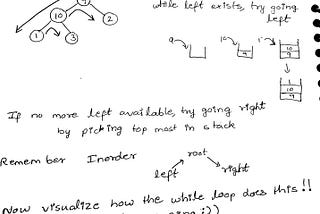 while left exists, try going
left
9
10
2
1
3
9
10
9
1
10
9
1
10
9
If no more left available, try going right
by picking top most in stack
Remember Inorder
root
left
right
Now visualize how the while loop does this!!